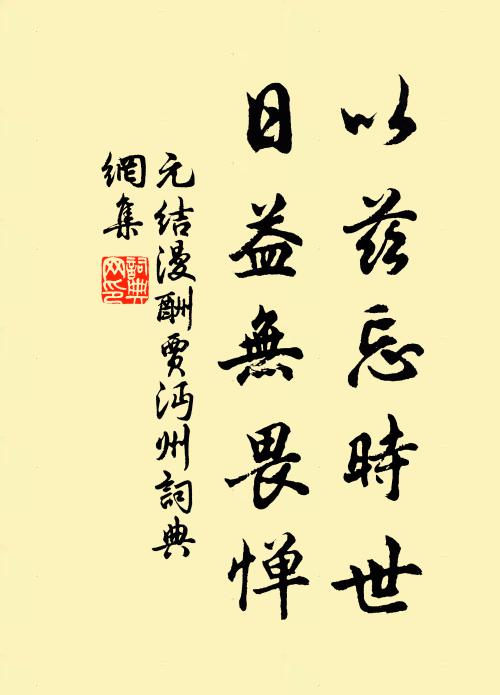 以兹忘時世
日益無畏惮
元结漫酬賈沔州詞典
網集
詞典
网印